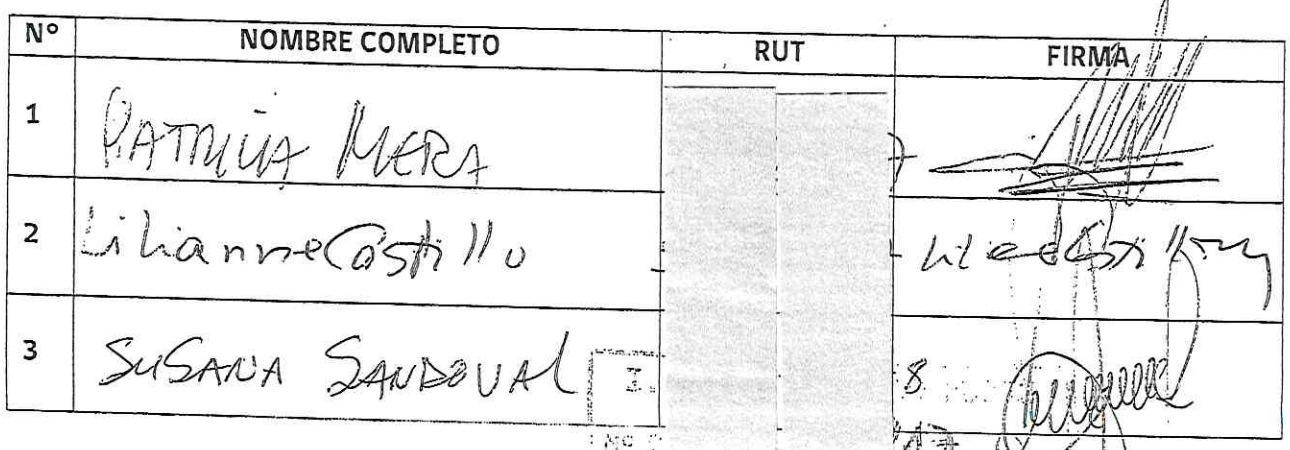 N° NOMBRE COMPLETO RUT FIRMA
1 PATRICIA MERA
2 Lilianne Castillo
3 SUSANA SANDOVAL 8